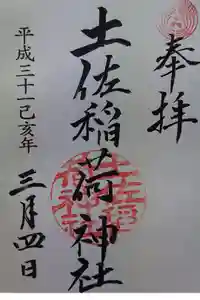 奉拝
土佐稲荷神社
平成三十一己亥年
三月四日